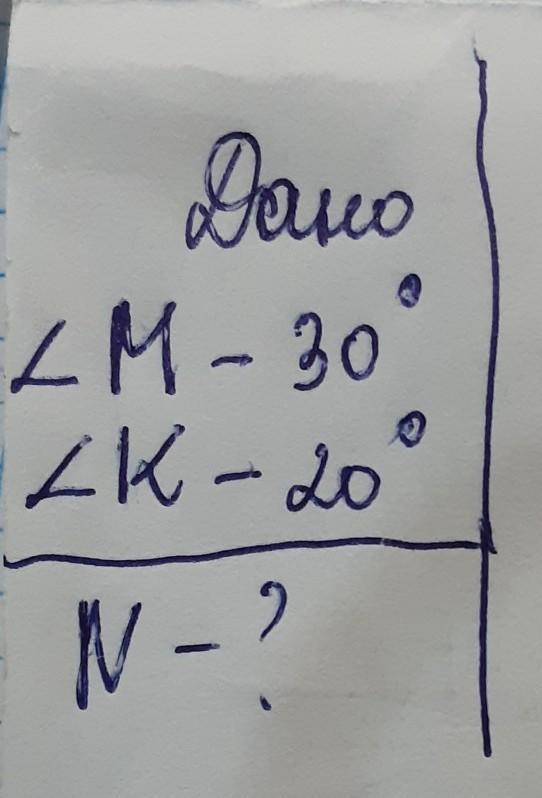 Дано
∠M - 30°
∠K - 20°
N - ?